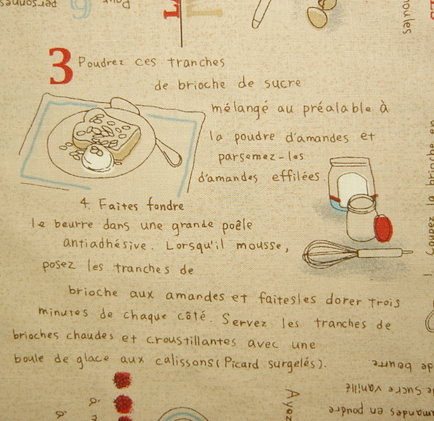 3 Poudrez ces tranches
de brioche de sucre
mélangé au préalable à
la poudre d'amandes et
parsemez-les
d'amandes effilées.
4. Faites fondre
le beurre dans une grande poêle
antiadhésive. Lorsqu'il mousse,
posez les tranches de
brioche aux amandes et faitesles dorer trois
minutes de chaque côté. Servez les tranches de
brioches chaudes et croustillantes avec une
boule de glace aux calissons (Picard surgelés).
Pour 6
personnes
1. Coupez la brioche en
de beurre
de sucre vanillé
amandes en poudre
Ayez